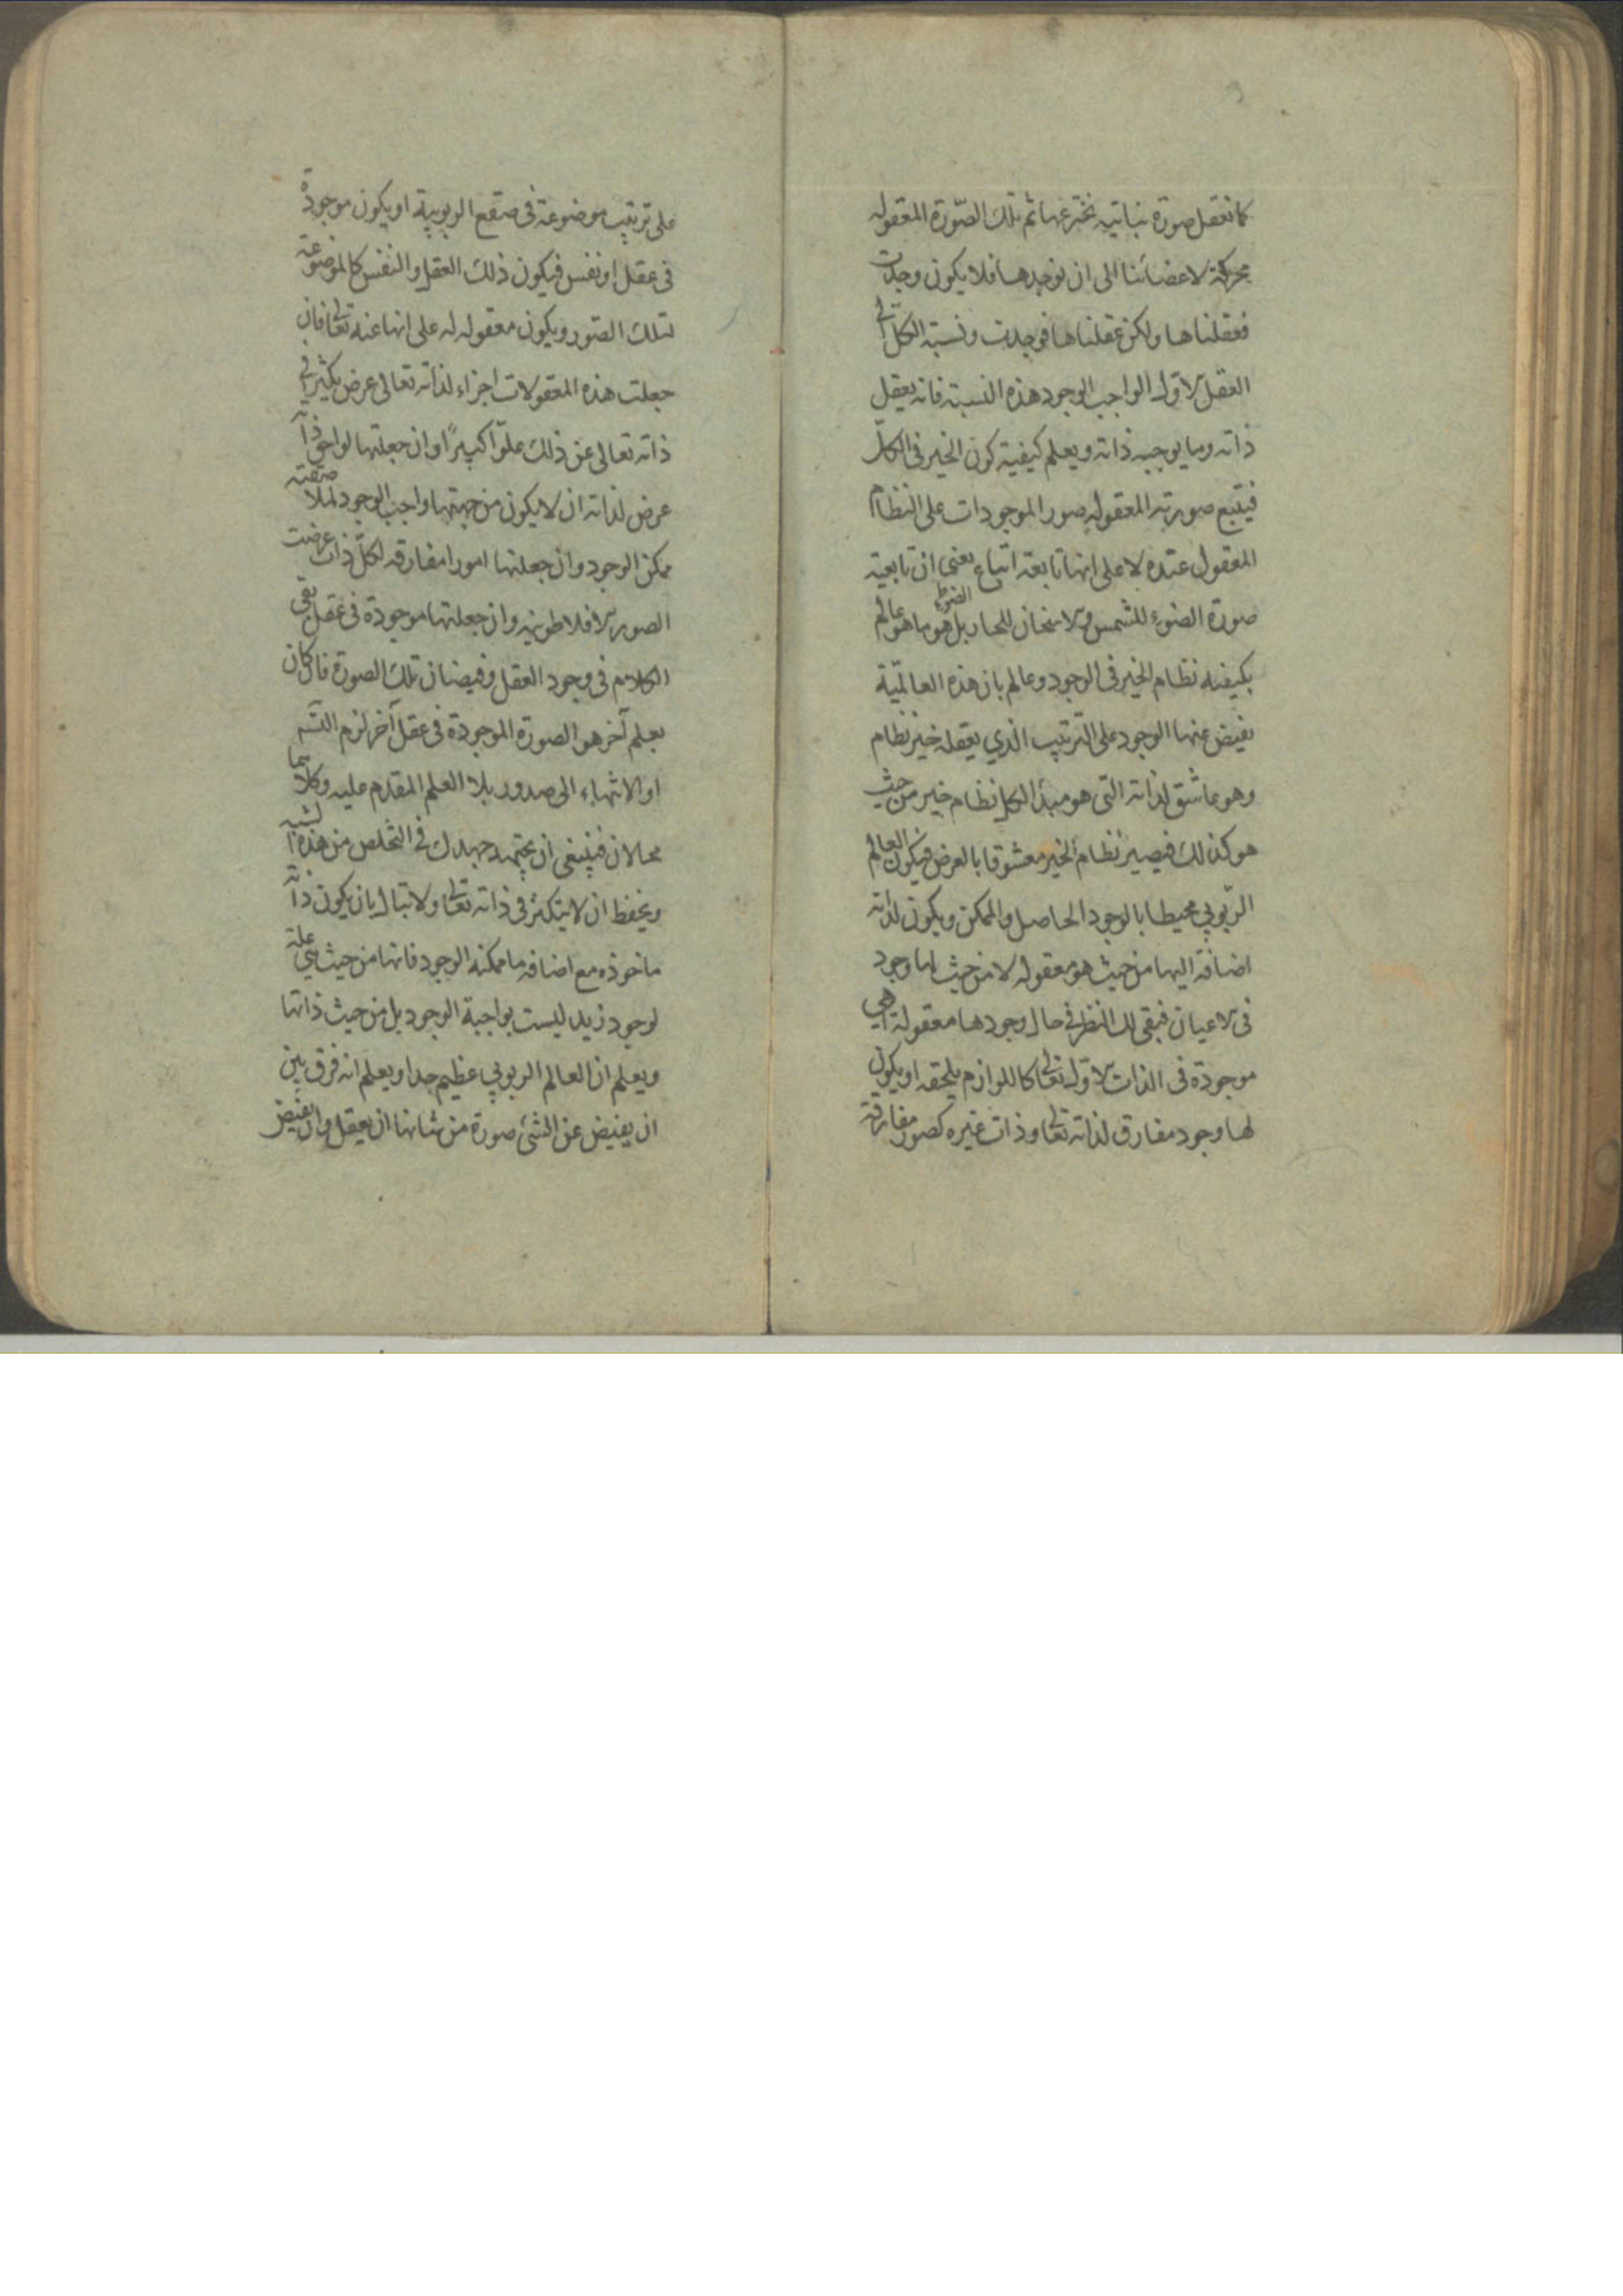 كما نعقل صورة بنائيه نخترعها ثم تلك الصّورة المعقوله
محركة لاعضائنا الى ان نوجدها فلا يكون وجدت
فعقلناها ولكن عقلناها فوجدت ونسبة الكل الى
العقل الاول الواجب الوجود هذه النسبة فانه يعقل
ذاته وما يوجبه ذاته ويعلم كيفية كون الخير فى الكلّ
فيتبع صورته المعقوله صور الموجودات على النظام
المعقول عنده لا على انها تابعة اتباع يعنى ان تابعية
صورة الضوء للشمس والاسخان للحار بل هو ما هو عالم
بكيفيه نظام الخير فى الوجود وعالم بان هذه العالمّية
يفيض عنها الوجود على الترتيب الذي يعقله خير نظام
وهو عاشق لذاته التى هو مبدأ لكل نظام خير من حيث
هو كذلك فيصير نظام الخير معشوقا بالعرض فيكون العالم
الربّوبي محيطا بالوجود الحاصل والممكن ويكون لذاته
اضافة اليها من حيث هو معقوله لا من حيث لها وجود
فى الاعيان فبقى لك النظر فى حال وجودها معقولة اهي
موجودة فى الذات الاول تعالى كاللوازم يلحقه او يكون
لها وجود مفارق لذاته تعالى وذات غيره كصور مفارقة
على ترتيب موضوعة فى صقع الربوبية او يكون موجودة
فى عقل او نفس فيكون ذلك العقل والنفس كالموضوعة
لتلك الصّور ويكون معقوله له على انها عنه تعالى فان
جعلت هذه المعقولات اجزاء لذاته تعالى عرض تكثير فى
ذاته تعالى عن ذلك علوّا كبيرًا وان جعلتها لواحق ذاته
عرض لذاته ان لا يكون من جهتها واجب الوجود لملاصقته
ممكن الوجود وان جعلتها امورا مفارقه لكلّ ذات عرضت
الصور الافلاطونيه وان جعلتها موجودة فى عقل بقى
الكلام فى وجود العقل وفيضان تلك الصورة فان كان
بعلم آخر هو الصورة الموجودة فى عقل آخر لزم التسم
او الانتهاء الى صدور بلا العلم المقدم عليه وكلاهما
محالان فينبغى ان تجتهد جهدك فى التخلص من هذه الشبه
ويحفظ ان لا يتكثر فى ذاته تعالى ولا تبال بان يكون ذاته
ماخوذه مع اضافه ما ممكنه الوجود فانها من حيث هي علة
لوجود زيد ليست بواجبة الوجود بل من حيث ذاتها
ويعلم ان العالم الربوبي عظيم جدا ويعلم انه فرق بين
ان يفيض عن الشئ صورة من شانها ان يعقل وان يفيض